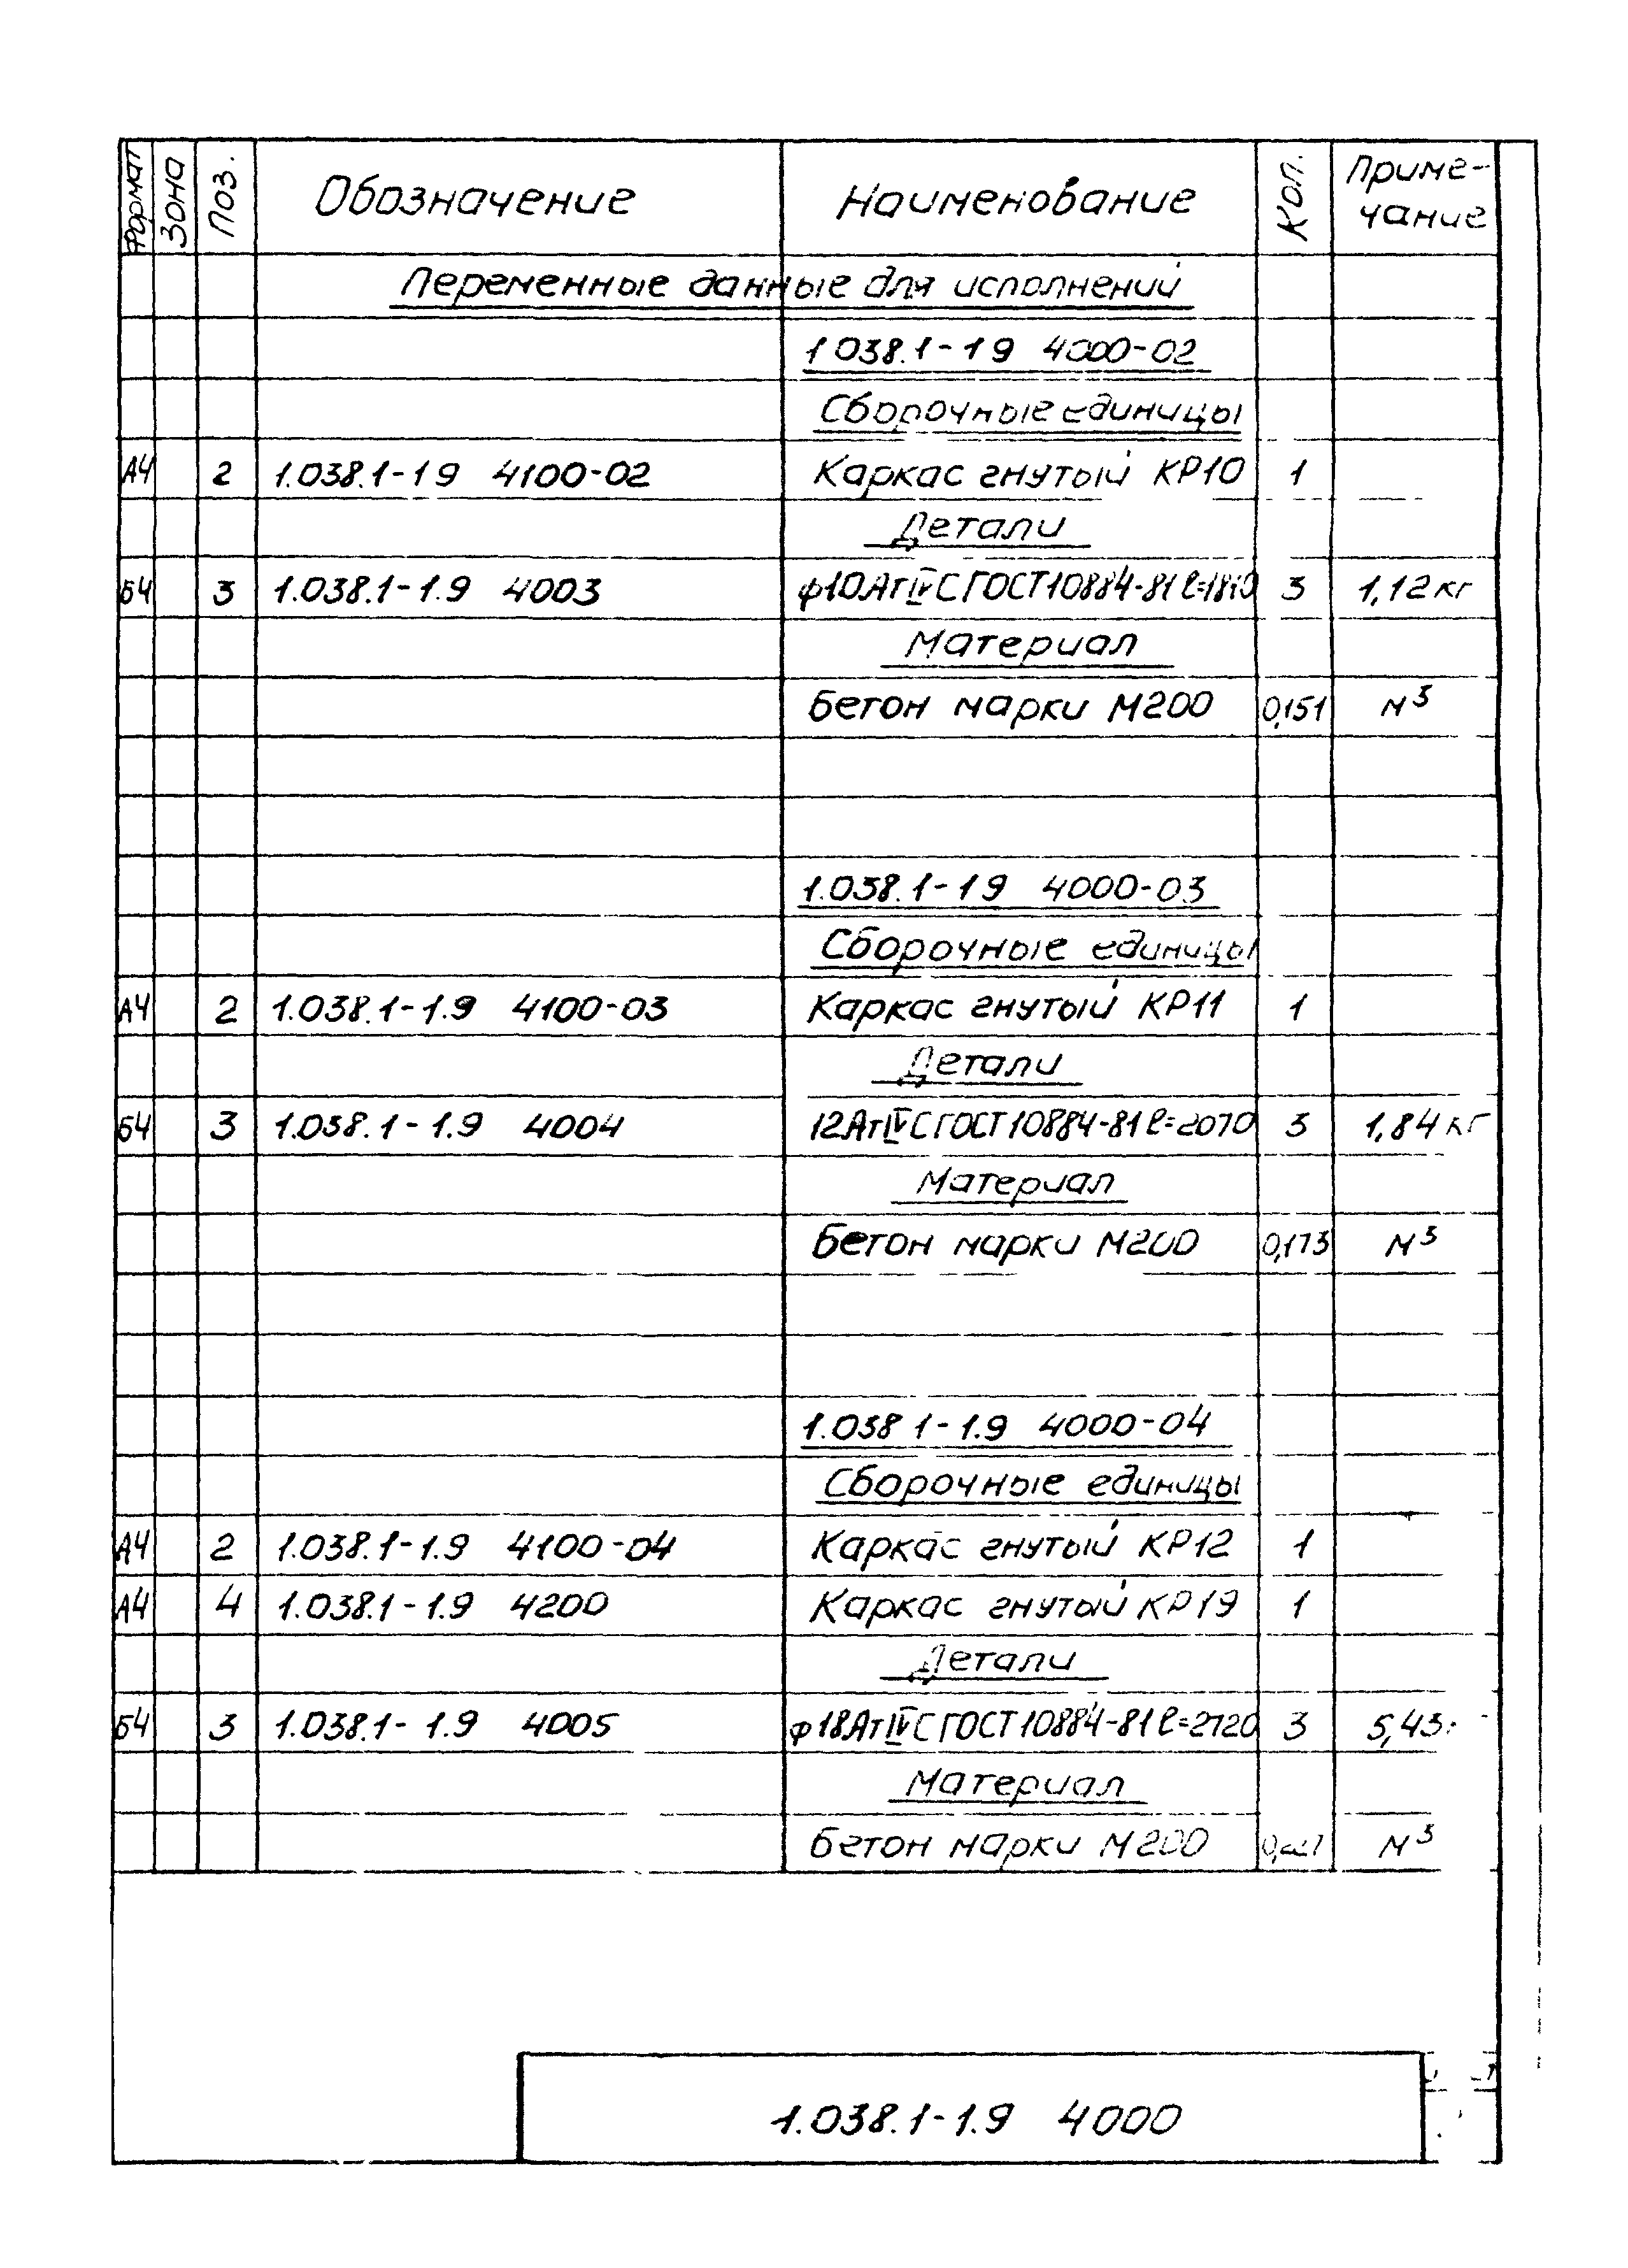 Формат Зона Поз. Обозначение Наименование Кол. Приме-
чание
Переменные данные для исполнений
1 038.1-1 9 4000-02
Сборочные единицы
А4 2 1.038.1-1 9 4100-02 Каркас гнутый КР10 1
Детали
Б4 3 1.038.1-1.9 4003 ф10АтIVС ГОСТ10884-81 ℓ=1810 3 1,12 кг
Материал
Бетон марки М200 0,151 м³
1.038.1-1 9 4000-03
Сборочные единицы
А4 2 1.038.1-1.9 4100-03 Каркас гнутый КР11 1
Детали
Б4 3 1.038.1-1.9 4004 12АтIVС ГОСТ10884-81 ℓ=2070 3 1,84 кг
Материал
Бетон марки М200 0,173 м³
1.038 1-1.9 4000-04
Сборочные единицы
А4 2 1.038.1-1.9 4100-04 Каркас гнутый КР12 1
А4 4 1.038.1-1.9 4200 Каркас гнутый КР19 1
Детали
Б4 3 1.038.1-1.9 4005 ф18АтIVС ГОСТ10884-81 ℓ=2720 3 5,43
Материал
Бетон марки М200 м³
1.038.1-1.9 4000